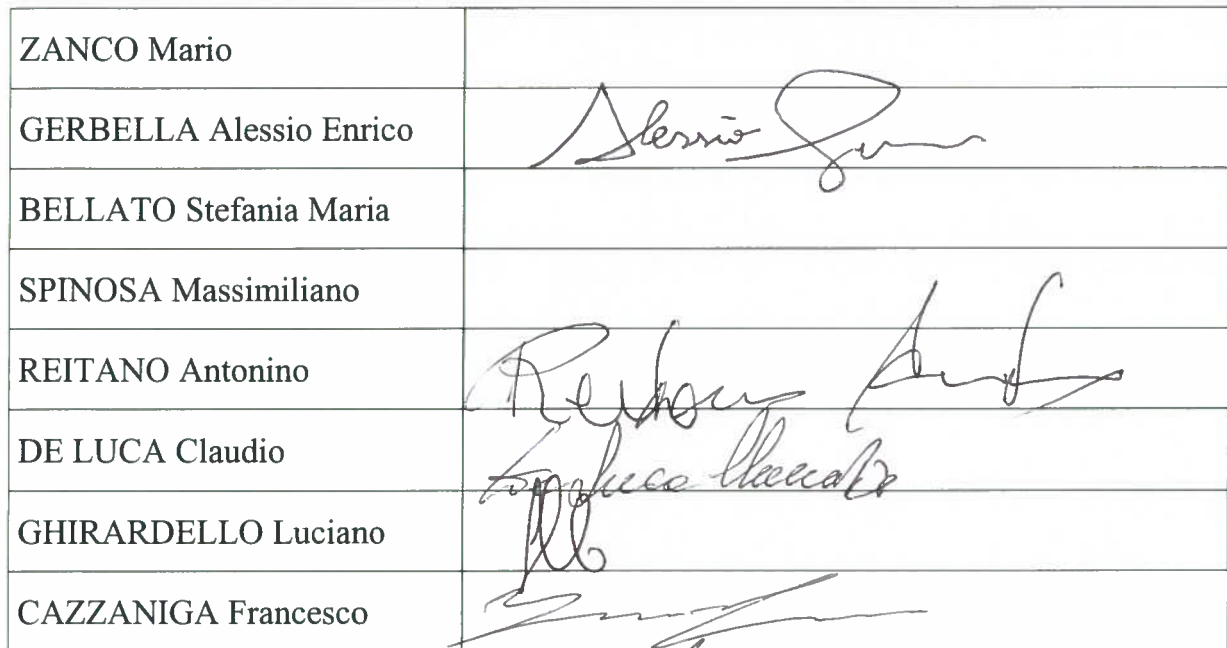 ZANCO Mario
GERBELLA Alessio Enrico
Alessio
BELLATO Stefania Maria
SPINOSA Massimiliano
REITANO Antonino
DE LUCA Claudio
GHIRARDELLO Luciano
CAZZANIGA Francesco